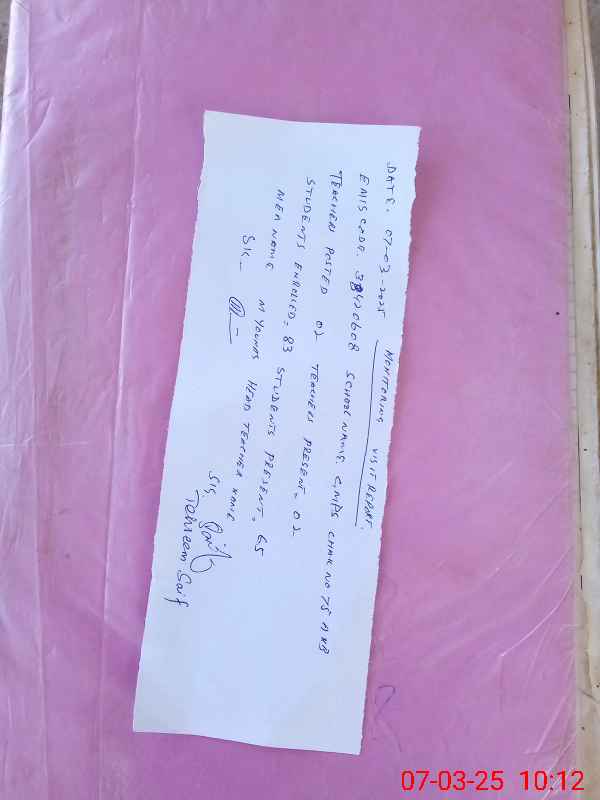 DATE. 07-03-2025 MONITORING VISIT REPORT.
EMIS CODE. 38420608 SCHOOL NAME. GMPS CHAK NO 75 A NB
TEACHERS POSTED 02 TEACHERS PRESENT. 02
STUDENTS ENROLLED. 83 STUDENTS PRESENT. 65
MEA NAME M YOUNAS HEAD TEACHER NAME
SIG_
SIG.
Tehreem Saif
07-03-25 10:12